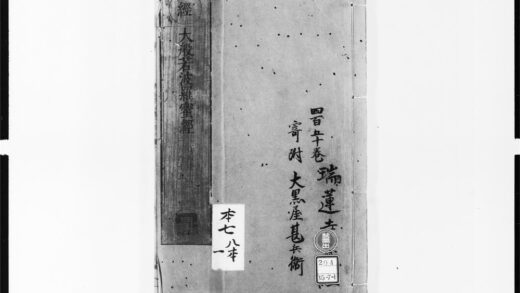 經 大般若波羅蜜經
四百五十卷
瑞蓮寺
寄附 大黒屋甚兵衛
本七 八本
一